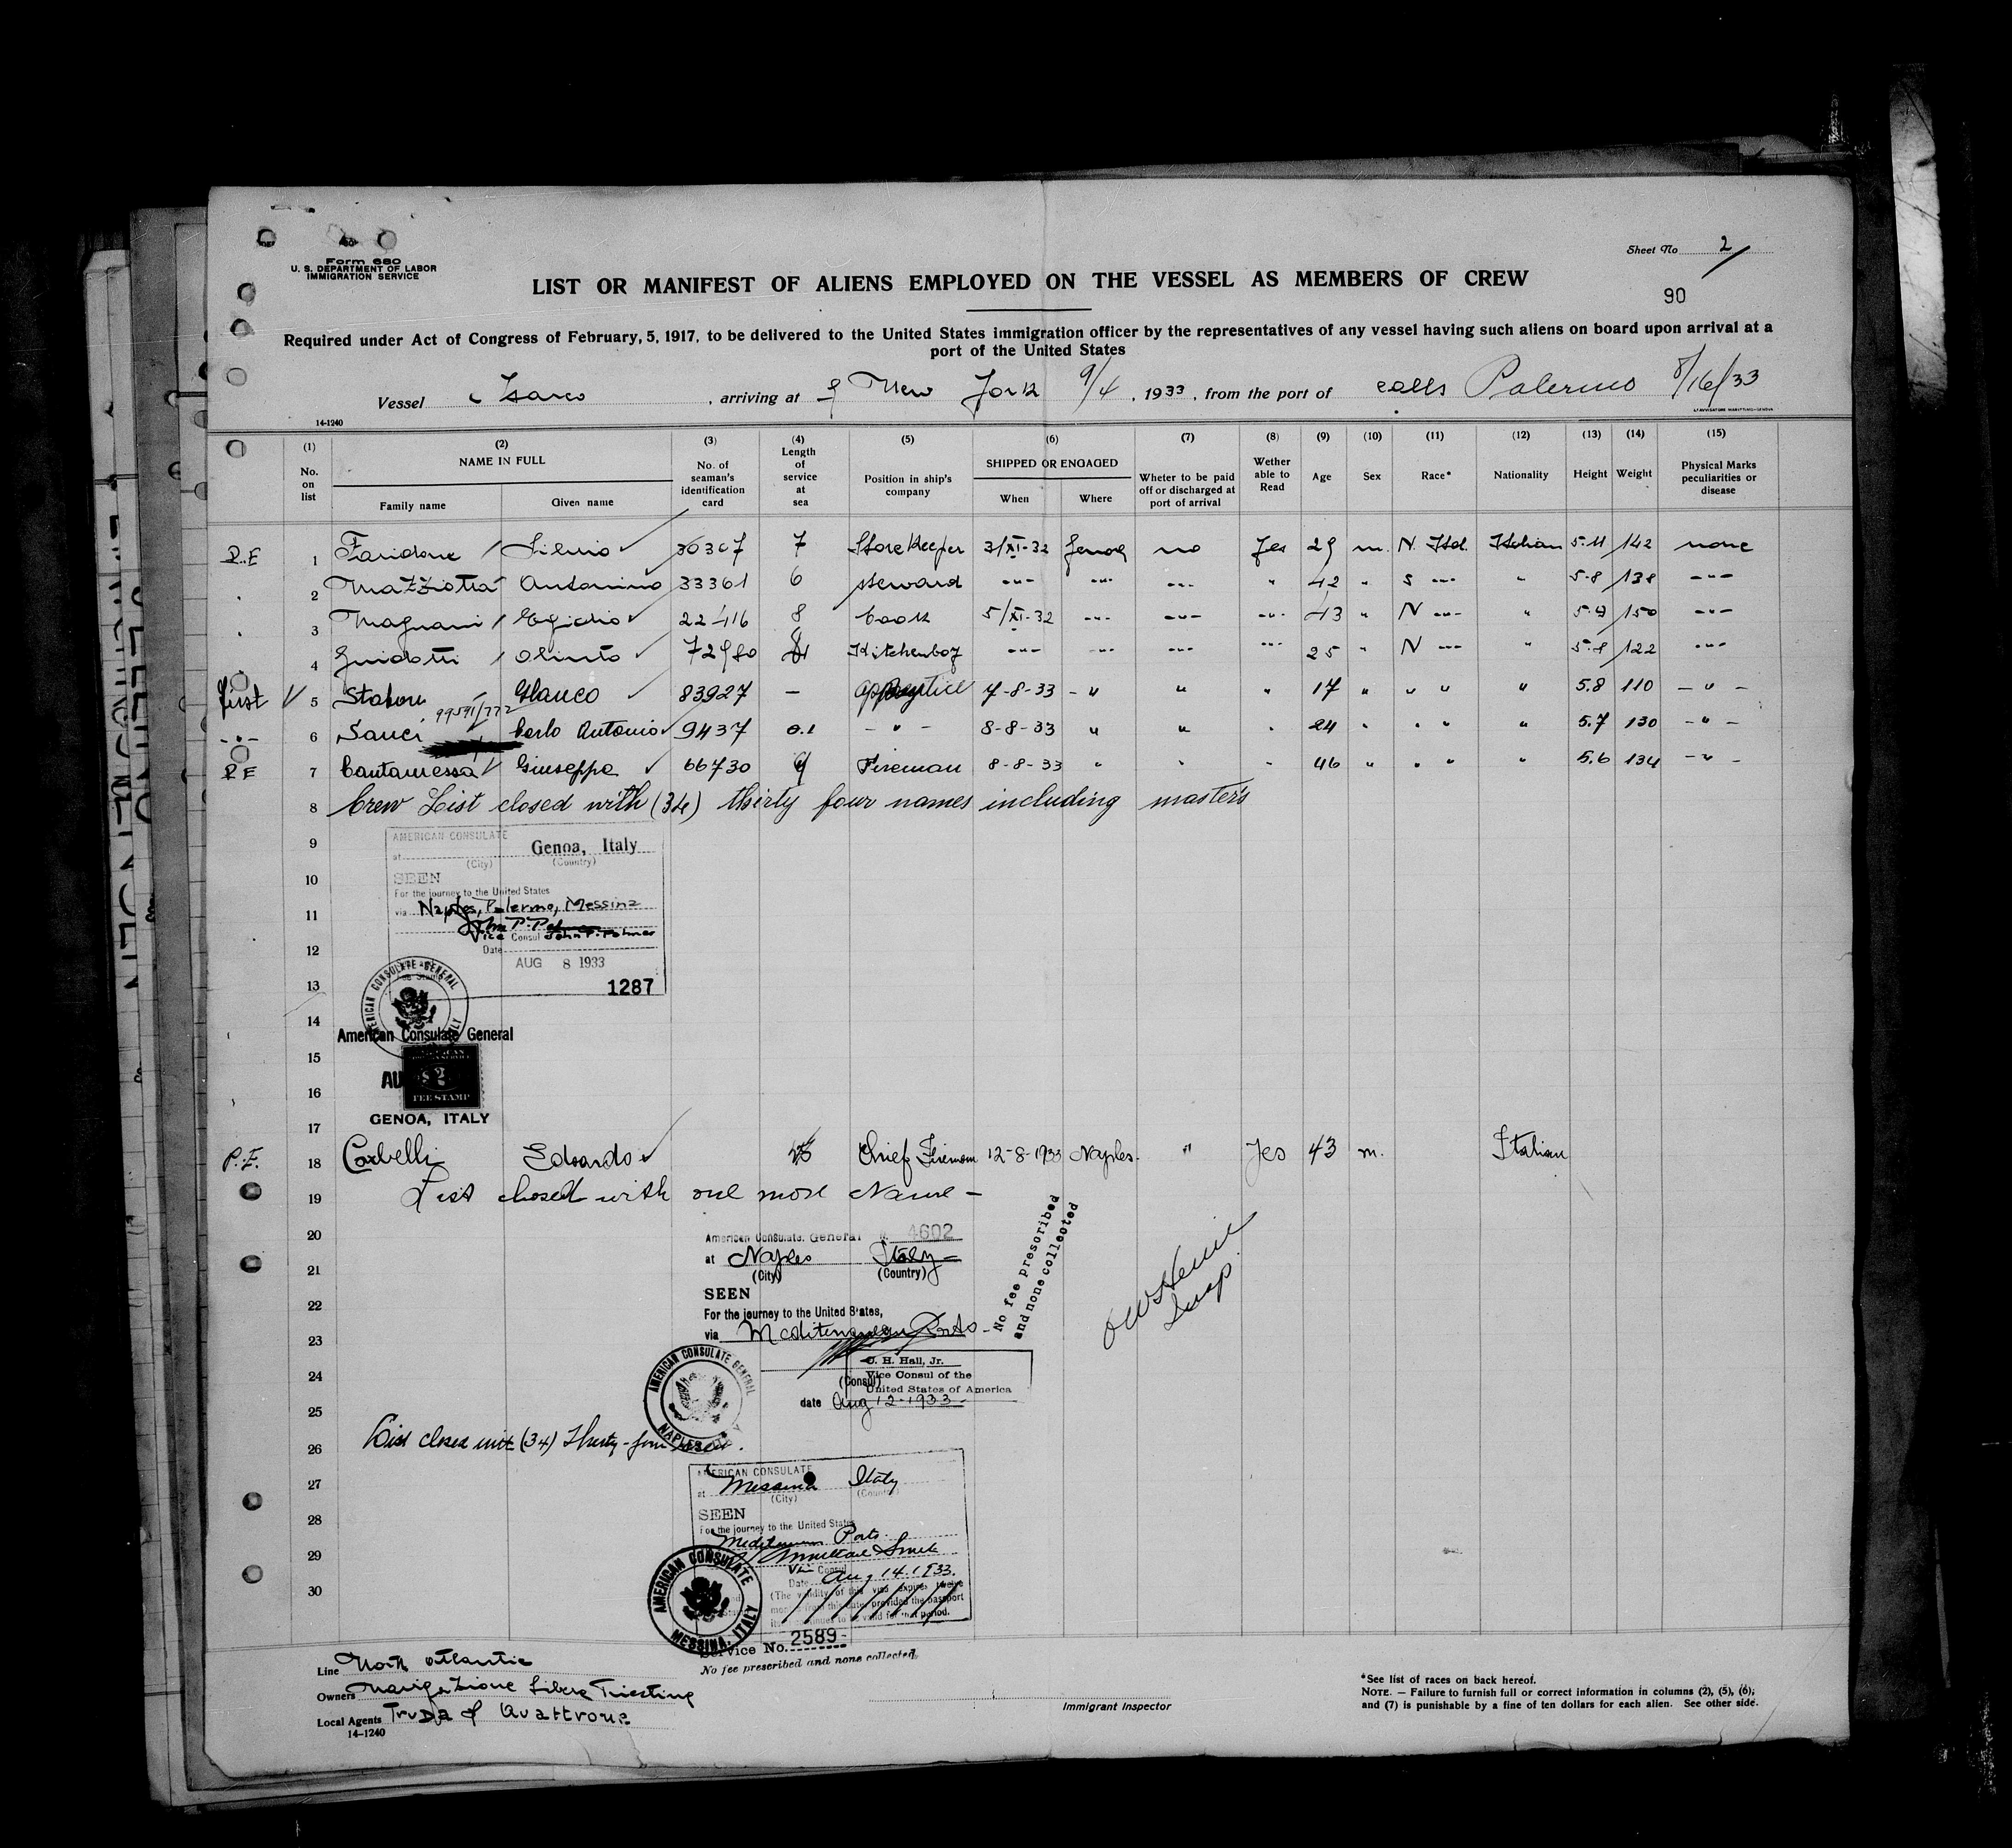 Form 680
U. S. DEPARTMENT OF LABOR
IMMIGRATION SERVICE
Sheet No 2
LIST OR MANIFEST OF ALIENS EMPLOYED ON THE VESSEL AS MEMBERS OF CREW
90
Required under Act of Congress of February, 5, 1917, to be delivered to the United States immigration officer by the representatives of any vessel having such aliens on board upon arrival at a
port of the United States
Vessel Isarco , arriving at New York 9/4 , 1933 , from the port of calls Palermo 8/16/33
14-1240
(1) (2) (3) (4) (5) (6) (7) (8) (9) (10) (11) (12) (13) (14) (15)
No. on list NAME IN FULL Family name Given name No. of seaman's identification card Length of service at sea Position in ship's company SHIPPED OR ENGAGED When Where Wheter to be paid off or discharged at port of arrival Wether able to Read Age Sex Race* Nationality Height Weight Physical Marks peculiarities or disease
1 Silvio 30307 7 StoreKeeper 3/XI-32 Genoa no Yes 29 m. N. Ital. Italian 5.11 142 none
2 Mazziotta Antonino 33361 6 steward " " " " 42 " S " " 5-8 138 "
3 Magnani Egidio 22416 8 Cook 5/XI-32 " " " 43 " N " " 5-9 150 "
4 Guidotti Olinto 72980 Kitchenboy " " " " 25 " N " " 5-8 122 "
First 5 Glauco 83927 - apprentice 7-8-33 " " " 17 " " " " 5.8 110 - " -
99591/772
6 Sanci Carlo Antonio 9437 0.1 - " - 8-8-33 " " " 24 " " " " 5.7 130 - " -
7 Cantamessa Giuseppe 66730 Fireman 8-8-33 " " " 46 " " " " 5.6 134 - " -
8 Crew List closed with (34) thirty four names including master's
9 AMERICAN CONSULATE
at Genoa, Italy
(City) (Country)
10 SEEN
For the journey to the United States
11 via Naples, Palermo, Messina
Vice Consul John P. Palmer
12 Date AUG 8 1933
13 1287
AMERICAN CONSULATE GENERAL
14 American Consulate General
15
16 FEE STAMP
GENOA, ITALY
17
P.E. 18 Corbelli Edoardo Chief Fireman 12-8-1933 Naples. " Yes 43 m. Italian
19 List closed with one more Name -
20 American Consulate General 4602
21 at Naples Italy
(City) (Country)
SEEN
22 For the journey to the United States,
23 via Mediterranean Ports
No fee prescribed
and none collected
Insp.
24 J. H. Hall, Jr.
(Consul) Vice Consul of the
United States of America
25 date Aug 12-1933-
AMERICAN CONSULATE GENERAL
NAPLES
26 List closed with (34) Thirty-four
27 AMERICAN CONSULATE
at Messina Italy
(City) (Country)
28 SEEN
For the journey to the United States
29 Mediterranean Ports
Vice Consul
Date Aug 14.1933.
30 (The validity of this visa expires twelve
months from this date, provided the passport
continues to be valid for that period.
AMERICAN CONSULATE
MESSINA, ITALY
Service No. 2589-
No fee prescribed and none collected.
Line North Atlantic
Owners Navigazione Libera Triestina
Local Agents Truda & Quattrone
14-1240
Immigrant Inspector
*See list of races on back hereof.
NOTE. — Failure to furnish full or correct information in columns (2), (5), (6);
and (7) is punishable by a fine of ten dollars for each alien. See other side.